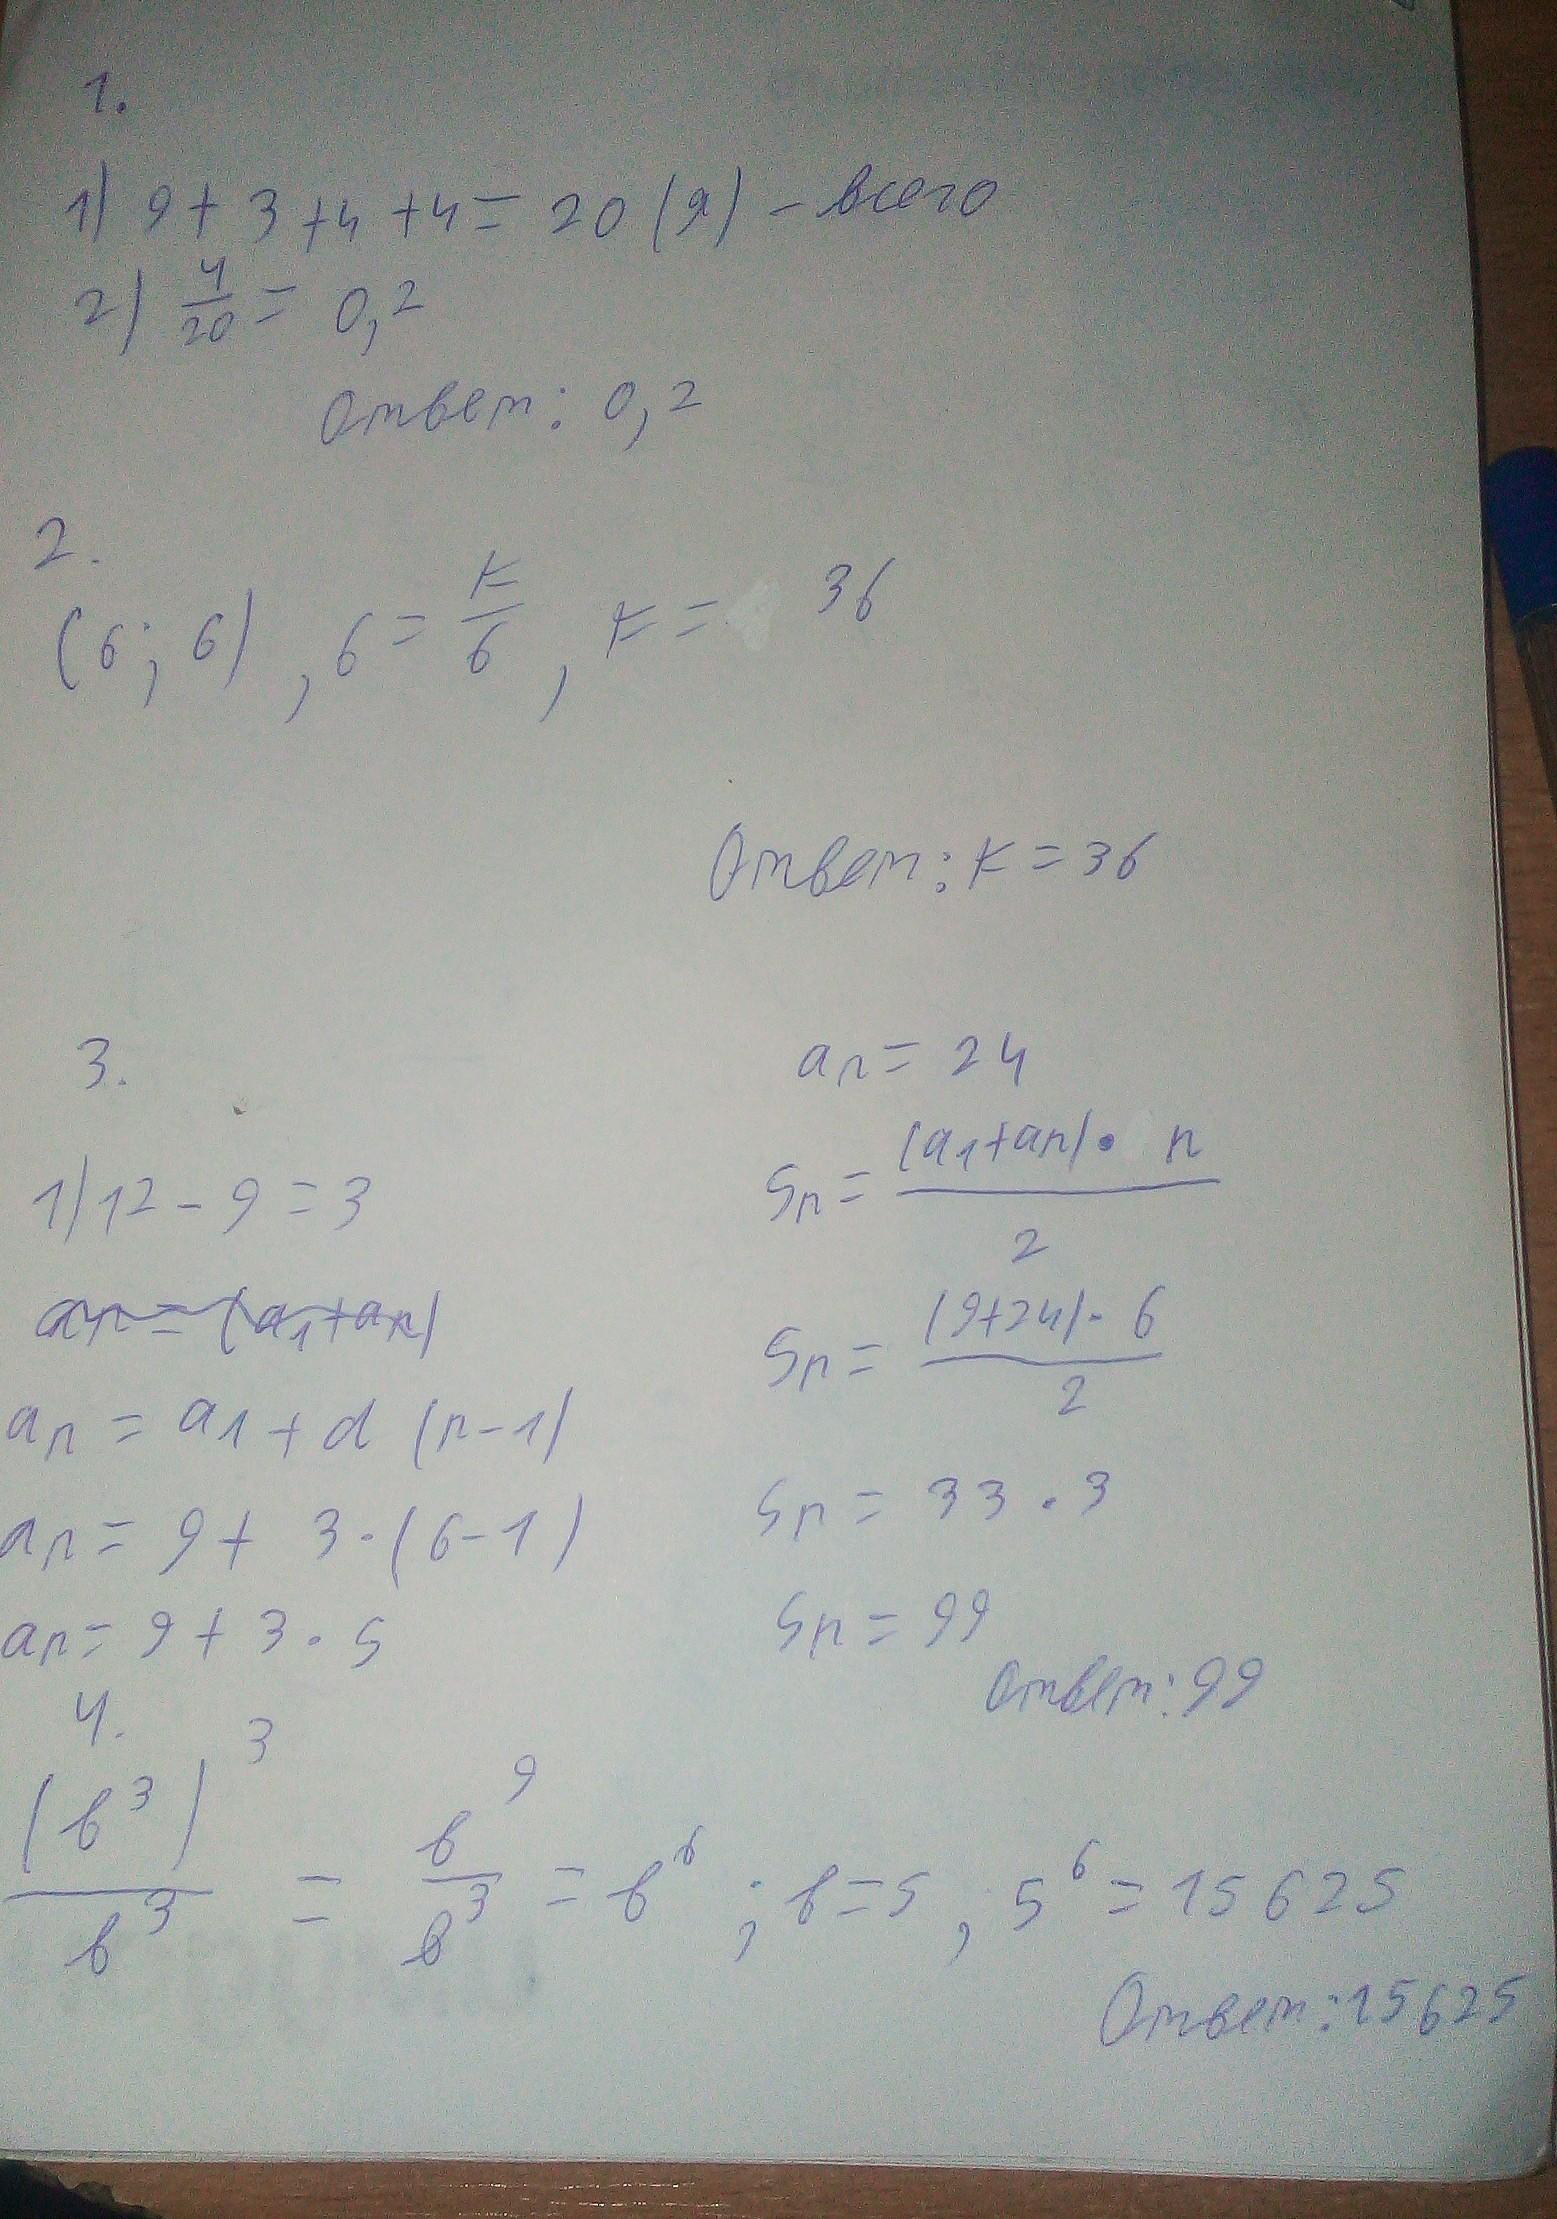 1.
1) 9 + 3 + 4 + 4 = 20 (я) - всего
2) 4/20 = 0,2
Ответ: 0,2
2.
(6; 6) , 6 = k/6 , k = 36
Ответ: k = 36
3.
1) 12 - 9 = 3
an = (a1 + an)
an = a1 + d (n - 1)
an = 9 + 3 · (6 - 1)
an = 9 + 3 · 5
an = 24
Sn = (a1 + an) · n / 2
Sn = (9 + 24) · 6 / 2
Sn = 33 · 3
Sn = 99
Ответ: 99
4.
(b³)³ / b³ = b⁹ / b³ = b⁶ ; b = 5 , 5⁶ = 15625
Ответ: 15625